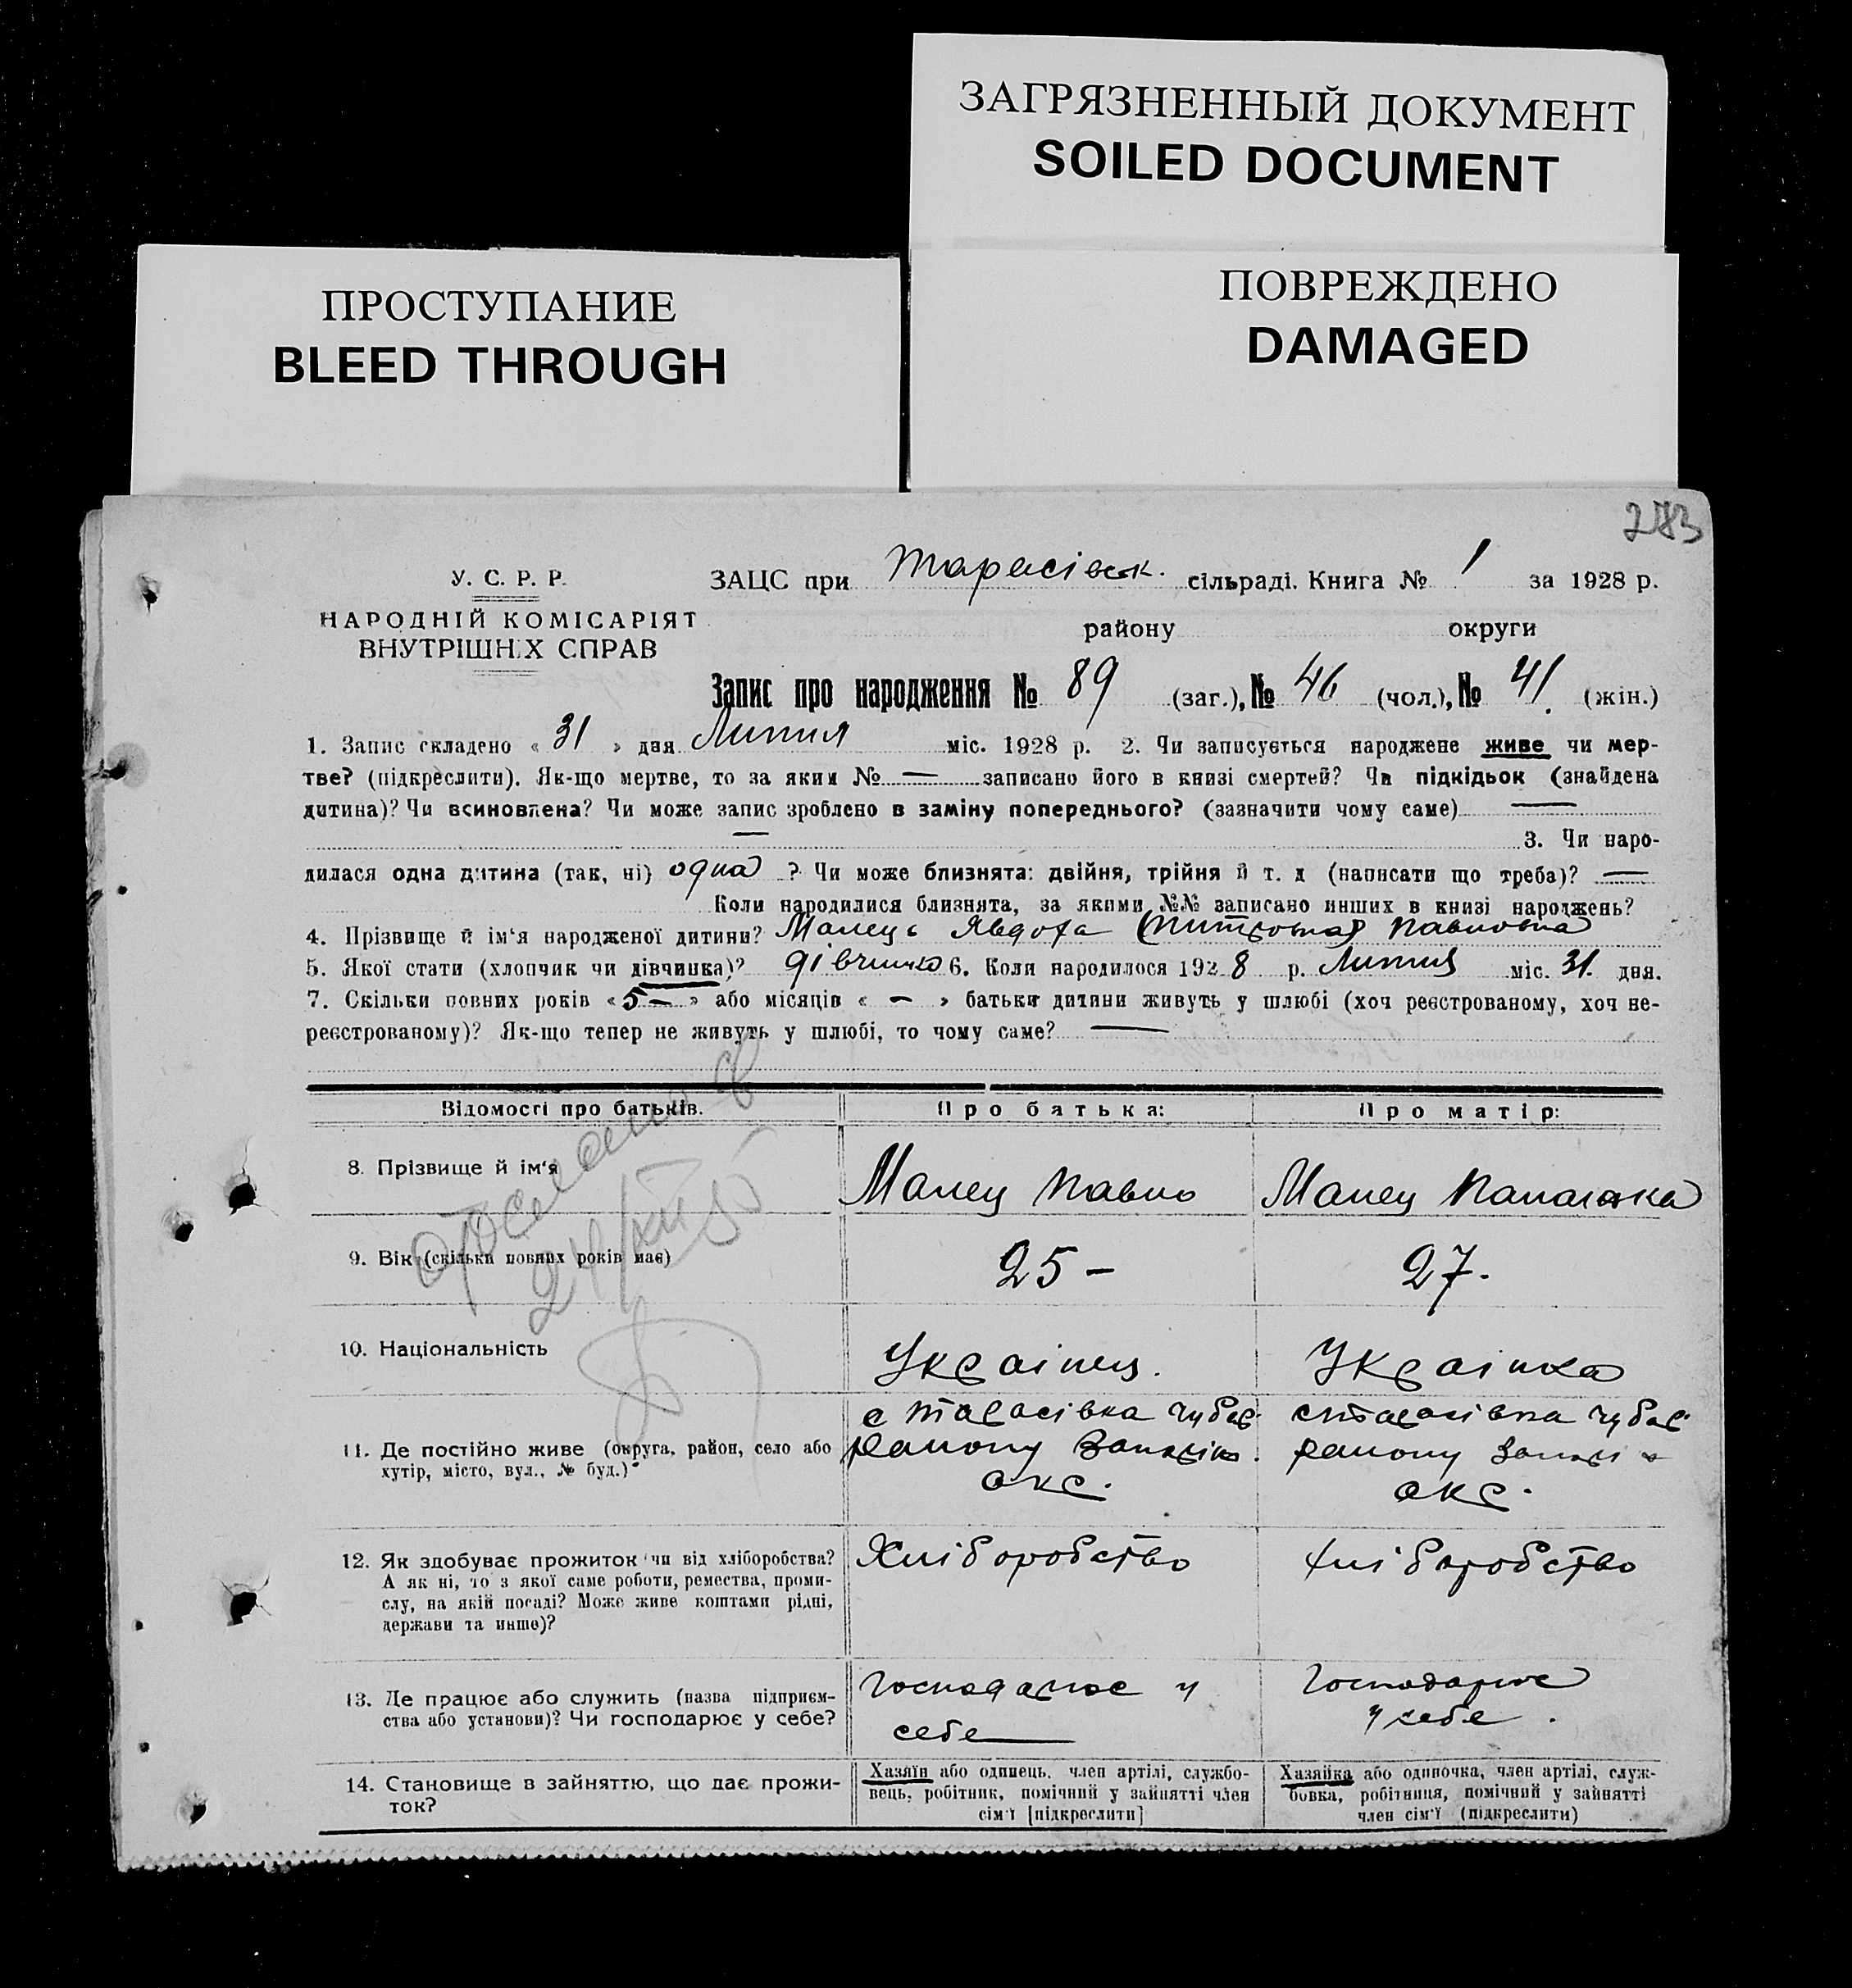 ЗАГРЯЗНЕННЫЙ ДОКУМЕНТ
SOILED DOCUMENT
ПРОСТУПАНИЕ
BLEED THROUGH
ПОВРЕЖДЕНО
DAMAGED
283
У. С. Р. Р.
НАРОДНІЙ КОМІСАРІЯТ
ВНУТРІШНІХ СПРАВ
ЗАЦС при Тарасівск. сільраді. Книга № 1 за 1928 р.
району округи
Запис про народження № 89 (заг.), № 46 (чол.), № 41. (жін.)
1. Запис складено « 31 » дня Липня міс. 1928 р. 2. Чи записується народжене живе чи мер-
тве? (підкреслити). Як-що мертве, то за яким № — записано його в книзі смертей? Чи підкідьок (знайдена
дитина)? Чи всиновлена? Чи може запис зроблено в заміну попереднього? (зазначити чому саме) —
— 3. Чи наро-
дилася одна дитина (так, ні) одна ? Чи може близнята: двійня, трійня й т. д (написати що треба)? —
Коли народилися близнята, за якими №№ записано инших в книзі народжень?
4. Прізвище й ім'я народженої дитини? Малець Явдоха Павловна
5. Якої стати (хлопчик чи дівчинка)? дівчинка 6. Коли народилося 1928 р. Липня міс. 31. дня.
7. Скільки повних років « 5 — » або місяців « — » батьки дитини живуть у шлюбі (хоч реєстрованому, хоч не-
реєстрованому)? Як-що тепер не живуть у шлюбі, то чому саме? —
Відомості про батьків. Про батька: Про матір:
8. Прізвище й ім'я Малец Павло Малец Палажка
9. Вік (скільки повних років має) 25 — 27.
10. Національність Українец. Українка
11. Де постійно живе (округа, район, село або
хутір, місто, вул., № буд.)
с Тарасівка Чубар.
району Запоріж.
окр.
с Тарасівка Чубар.
району
окр.
12. Як здобуває прожиток чи від хліборобства?
А як ні, то з якої саме роботи, ремества, проми-
слу, на якій посаді? Може живе коштами рідні,
держави та инше)?
Хліборобство
Хліборобство
13. Де працює або служить (назва підприєм-
ства або установи)? Чи господарює у себе?
Господарює у
себе
Господарює
у себе.
14. Становище в зайняттю, що дає прожи-
ток?
Хазяїн або одинець, член артілі, службо-
вець, робітник, помічний у зайнятті член
сім'ї [підкреслити]
Хазяйка або одиночка, член артілі, служ-
бовка, робітниця, помічний у зайнятті
член сім'ї (підкреслити)